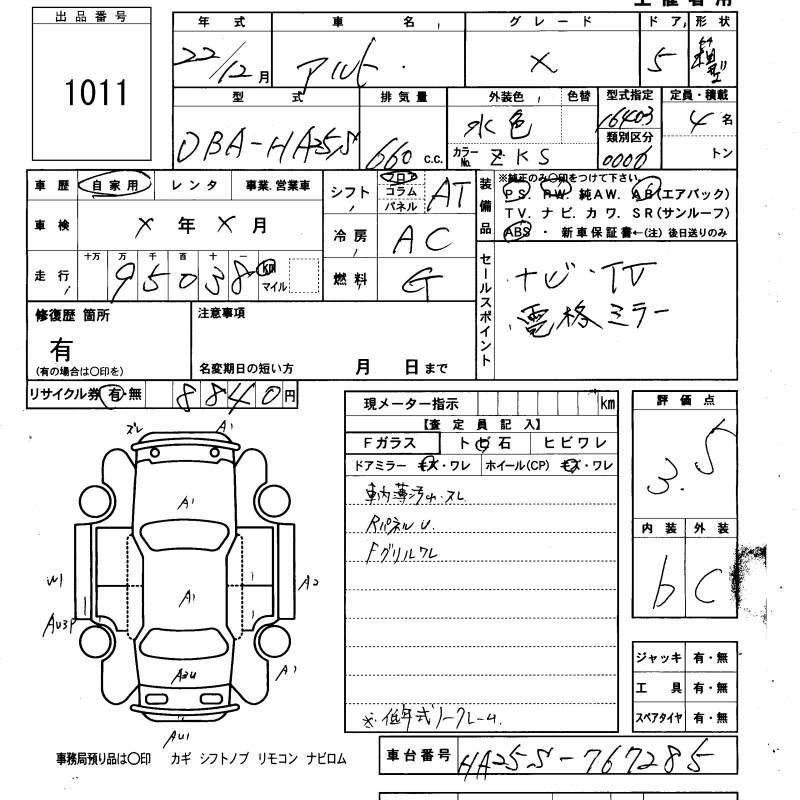 出品番号
1011
年式 車名 グレード ドア 形状
22/12月 アルト X 5 箱型
型式 排気量 外装色 色替 型式指定 定員・積載
DBA-HA25S 660 c.c. 水色 16403 4名
カラーNo. ZKS 類別区分 0006 トン
車歴 自家用 レンタ 事業.営業車
シフト フロア コラム パネル AT
装備品 ※純正のみ〇印をつけて下さい
PS. PW. 純AW. AB(エアバック)
TV. ナビ. カワ. SR(サンルーフ)
ABS ・ 新車保証書←(注)後日送りのみ
車検 X 年 X 月
冷房 AC
走行 十万 万 千 百 十 一
95038 km マイル
燃料 G
セールスポイント ナビ・TV
電格ミラー
修復歴 箇所
有
(有の場合は〇印を)
注意事項
名変期日の短い方 月 日まで
リサイクル券 有・無 8840円
現メーター指示 km
【査定員記入】
Fガラス トビ石 ヒビワレ
ドアミラー キズ・ワレ ホイール(CP) キズ・ワレ
車内薄汚れ・スレ
RパネルU.
Fグリルワレ
※低年式ノークレーム.
評価点
3.5
内装 外装
b C
ズレ A1
A1
W1 A1 A2
AU3P
A1
A3U
AU1
ジャッキ 有・無
工具 有・無
スペアタイヤ 有・無
事務局預り品は〇印 カギ シフトノブ リモコン ナビロム
車台番号 HA25S-767285